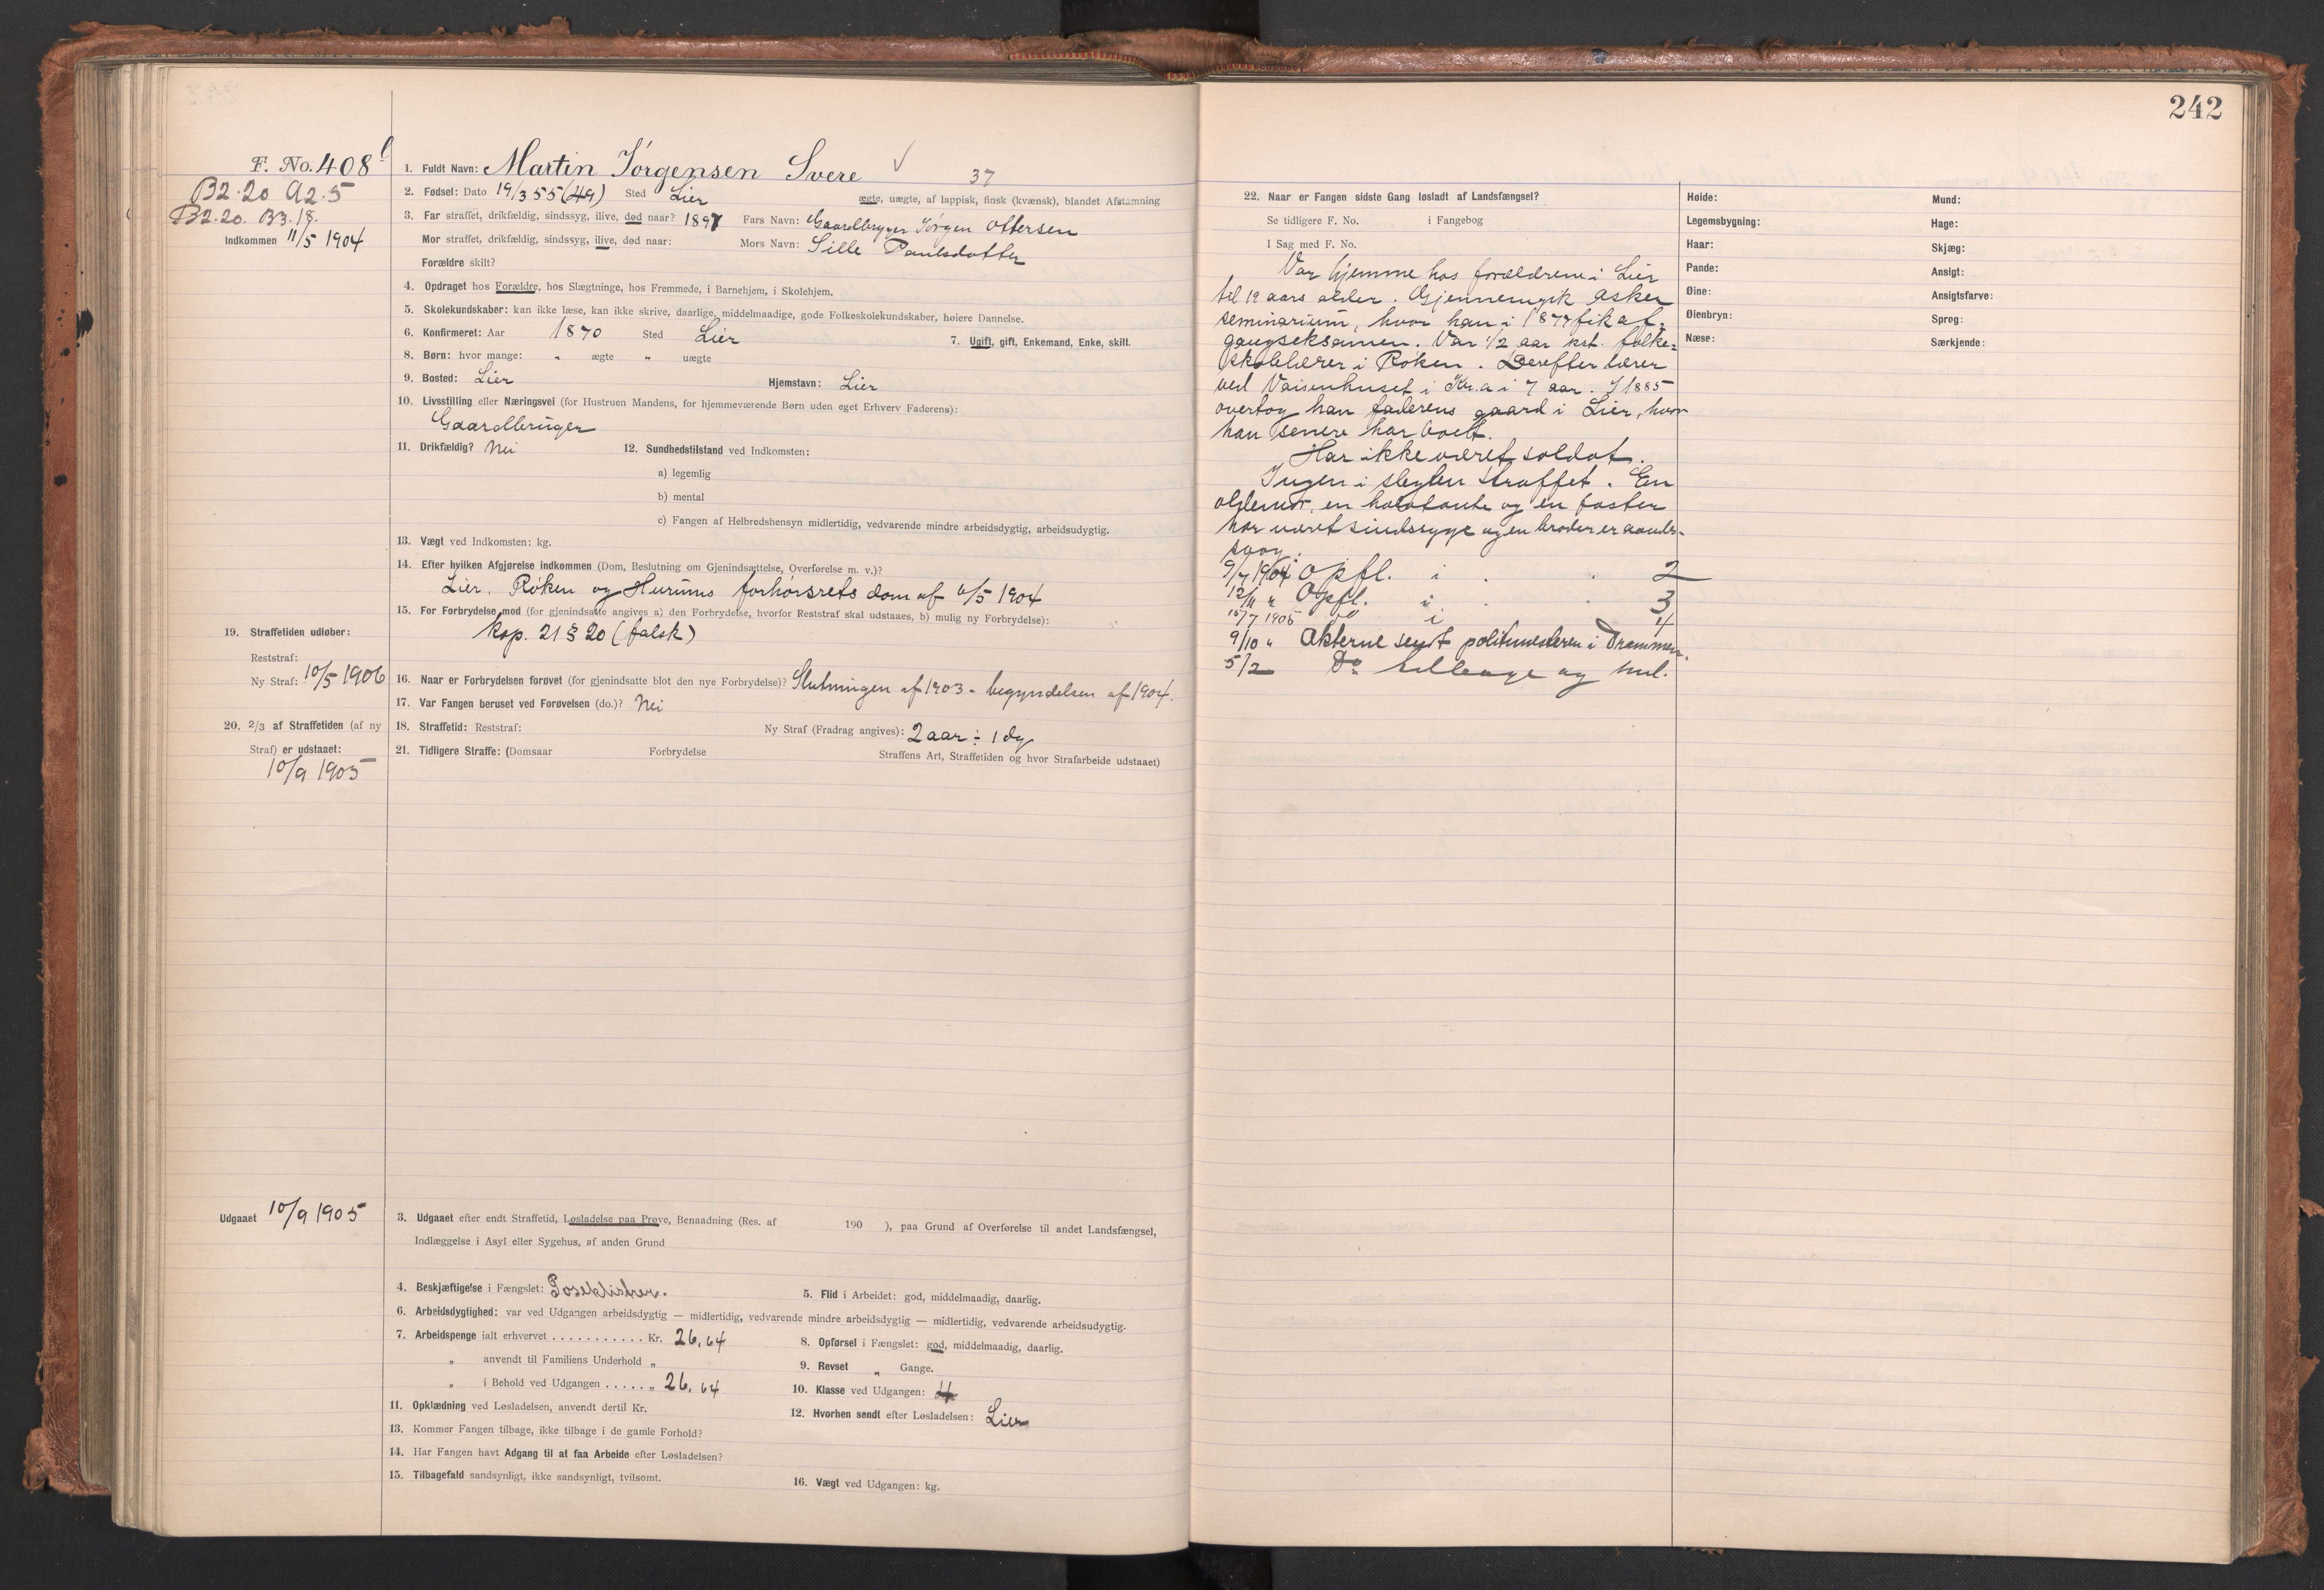 242
F. No. 408
B2.20 A2.5
B2.20. B3.18.
Indkommen 11/5 1904
1. Fuldt Navn: Martin Jørgensen Svere
37
2. Fødsel: Dato 19/3 55 (49) Sted Lier ægte, uægte, af lappisk, finsk (kvænsk), blandet Afstamning
3. Far straffet, drikfældig, sindssyg, ilive, død naar? 1897 Fars Navn: Gaardbruger Jørgen Ottersen
Mor straffet, drikfældig, sindssyg, ilive, død naar: Mors Navn: Sille Paulsdatter
Forældre skilt?
4. Opdraget hos Forældre, hos Slægtninge, hos Fremmede, i Barnehjem, i Skolehjem.
5. Skolekundskaber: kan ikke læse, kan ikke skrive, daarlige, middelmaadige, gode Folkeskolekundskaber, høiere Dannelse.
6. Konfirmeret: Aar 1870 Sted Lier 7. Ugift, gift, Enkemand, Enke, skilt.
8. Børn: hvor mange: " ægte " uægte
9. Bosted: Lier Hjemstavn: Lier
10. Livsstilling eller Næringsvei (for Hustruen Mandens, for hjemmeværende Børn uden eget Erhverv Faderens):
Gaardbruger
11. Drikfældig? Nei 12. Sundhedstilstand ved Indkomsten:
a) legemlig
b) mental
c) Fangen af Helbredshensyn midlertidig, vedvarende mindre arbeidsdygtig, arbeidsudygtig.
13. Vægt ved Indkomsten: kg.
14. Efter hvilken Afgjørelse indkommen (Dom, Beslutning om Gjenindsættelse, Overførelse m. v.)?
Lier, Røken og Hurums forhørsrets dom af 6/5 1904
15. For Forbrydelse mod (for gjenindsatte angives a) den Forbrydelse, hvorfor Reststraf skal udstaaes, b) mulig ny Forbrydelse):
Kap. 21 § 20 (falsk)
19. Straffetiden udløber:
Reststraf:
Ny Straf: 10/5 1906
16. Naar er Forbrydelsen forøvet (for gjenindsatte blot den nye Forbrydelse)? Slutningen af 1903 - begyndelsen af 1904.
17. Var Fangen beruset ved Forøvelsen (do.)? Nei
20. 2/3 af Straffetiden (af ny
Straf) er udstaaet:
10/9 1905
18. Straffetid: Reststraf: Ny Straf (Fradrag angives): 2 aar ÷ 1 dg
21. Tidligere Straffe: (Domsaar Forbrydelse Straffens Art, Straffetiden og hvor Strafarbeide udstaaet)
Udgaaet 10/9 1905
3. Udgaaet efter endt Straffetid, Løsladelse paa Prøve, Benaadning (Res. af 190 ), paa Grund af Overførelse til andet Landsfængsel,
Indlæggelse i Asyl eller Sygehus, af anden Grund
4. Beskjæftigelse i Fængslet: Poseklistrer. 5. Flid i Arbeidet: god, middelmaadig, daarlig.
6. Arbeidsdygtighed: var ved Udgangen arbeidsdygtig — midlertidig, vedvarende mindre arbeidsdygtig — midlertidig, vedvarende arbeidsudygtig.
7. Arbeidspenge ialt erhvervet . . . . . . . . . . . Kr. 26,64 8. Opførsel i Fængslet: god, middelmaadig, daarlig.
" anvendt til Familiens Underhold " 9. Revset " Gange.
" i Behold ved Udgangen . . . . . " 26,64 10. Klasse ved Udgangen: 4
11. Opklædning ved Løsladelsen, anvendt dertil Kr. 12. Hvorhen sendt efter Løsladelsen: Lier
13. Kommer Fangen tilbage, ikke tilbage i de gamle Forhold?
14. Har Fangen havt Adgang til at faa Arbeide efter Løsladelsen?
15. Tilbagefald sandsynligt, ikke sandsynligt, tvilsomt. 16. Vægt ved Udgangen: kg.
22. Naar er Fangen sidste Gang løsladt af Landsfængsel?
Se tidligere F. No. i Fangebog
I Sag med F. No.
Var hjemme hos forældrene i Lier
til 19 aars alder. Gjennemgik Asker
seminarium, hvor han i 1877 fik af-
gangseksamen. Var 1/2 aar kst. folke-
skolelærer i Røken. Derefter lærer
ved Vaisenhuset i Kr.a i 7 aar. I 1885
overtog han faderens gaard i Lier, hvor
han senere har boet.
Har ikke været soldat.
Ingen i slegten straffet. En
oldemor, en halvtante og en faster
har været sindssyge og en broder er aands-
svag.
9/7 1904 Opfl. i . . 2
12/11 " Opfl. i . . 3
15/7 1905 do i 4
9/10 " Akterne sendt politimesteren i Drammen.
5/2 Do tilbage og hul.
Høide:
Legemsbygning:
Haar:
Pande:
Øine:
Øienbryn:
Næse:
Mund:
Hage:
Skjæg:
Ansigt:
Ansigtsfarve:
Sprog:
Særkjende: